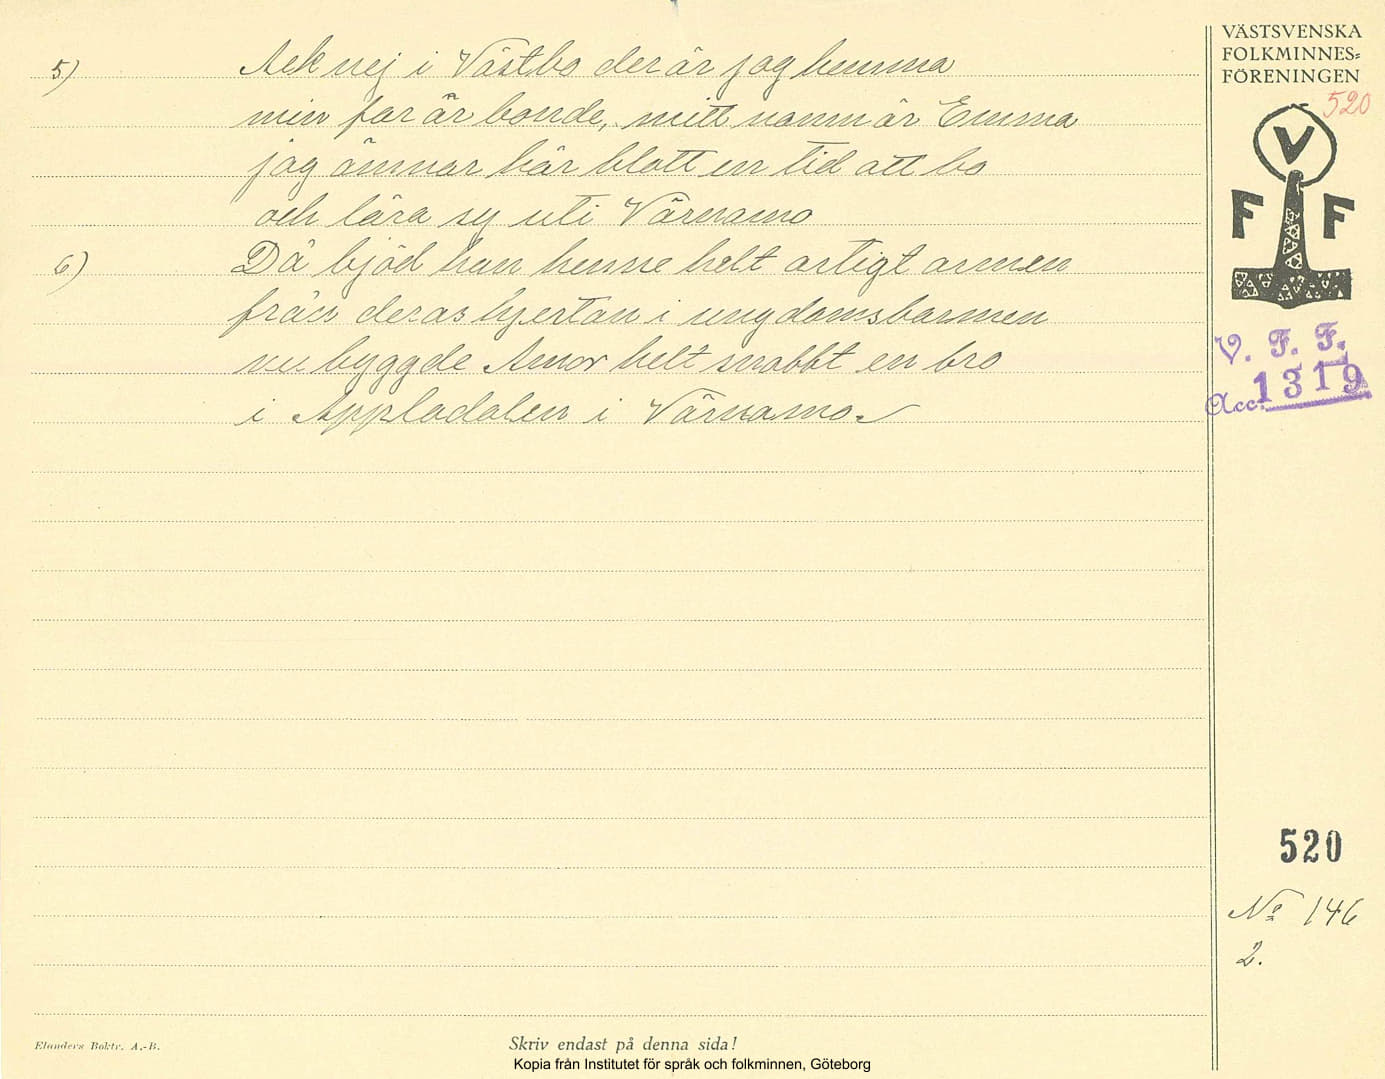 VÄSTSVENSKA
FOLKMINNES=
FÖRENINGEN
520
V
F F
V. F. F.
Acc. 1319
5) Ack nej i Västbo der är jag hemma
min far är bonde, mitt namn är Emma
jag ämnar här blott en tid att bo
och lära sy uti Värnamo
6) Då bjöd han henne helt artigt armen
från deras hjertan i ungdomsbarmen
nu byggde Amor helt snabbt en bro
i Appladalen i Värnamo.
520
No 146
2.
Elanders Boktr. A.-B.
Skriv endast på denna sida!
Kopia från Institutet för språk och folkminnen, Göteborg